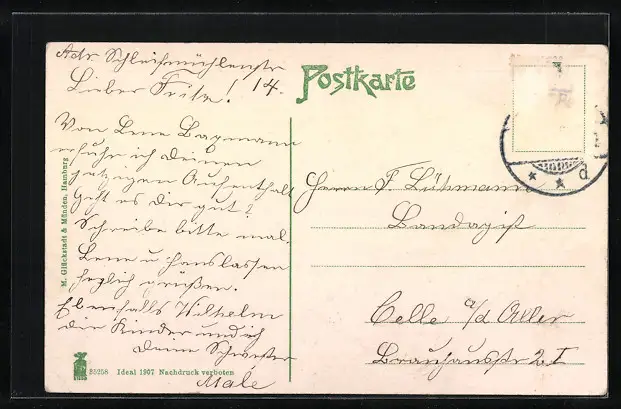 Adr. Schleifmühlenstr
14.
Lieber Fritz!
Von Lene Bapmann
erfuhr ich deinen
jetzigen Aufenthalt
geht es dir gut?
Schreibe bitte mal.
Lene u. Hans lassen
herzlich grüßen.
Ebenfalls Wilhelm
die Kinder und ich
Deine Schwester
Male
Postkarte
Herrn F. Lühmann
Bandagist
Celle a/d Aller
Brauhausstr 2 I
M. Glückstadt & Münden, Hamburg
33258 Ideal 1907 Nachdruck verboten
d